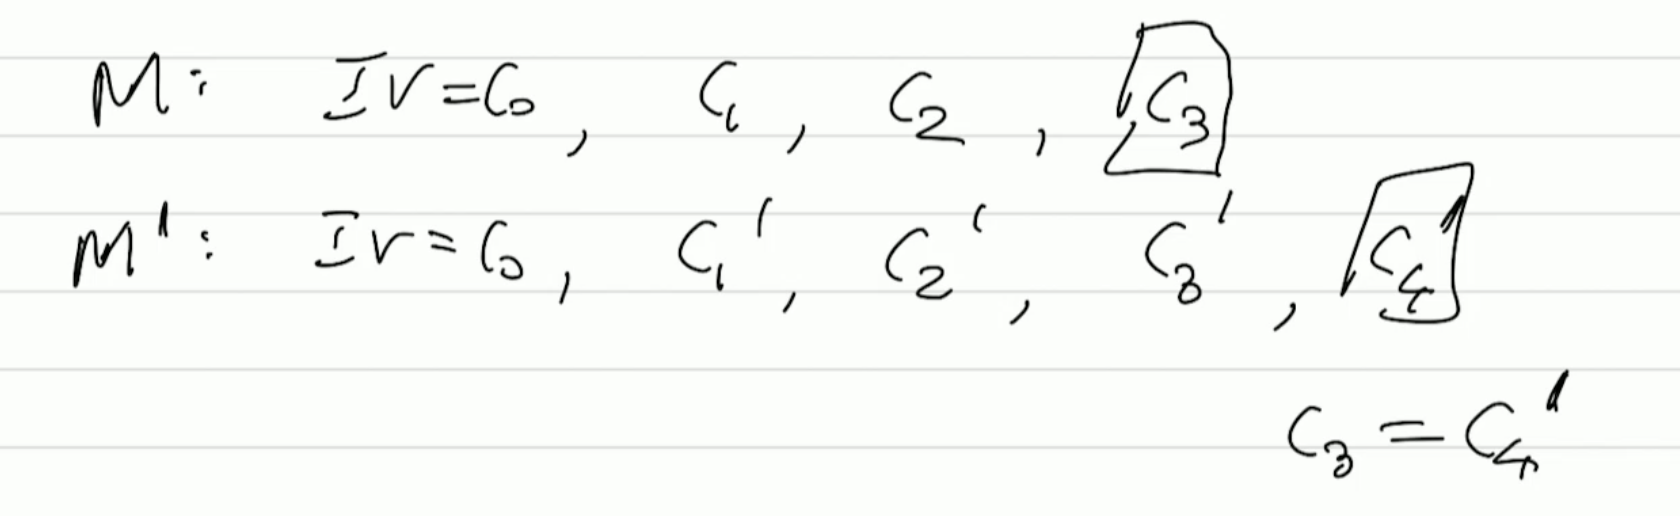 M: IV=C₀, C₁, C₂, C₃
M': IV=C₀, C₁', C₂', C₃', C₄'
C₃ = C₄'